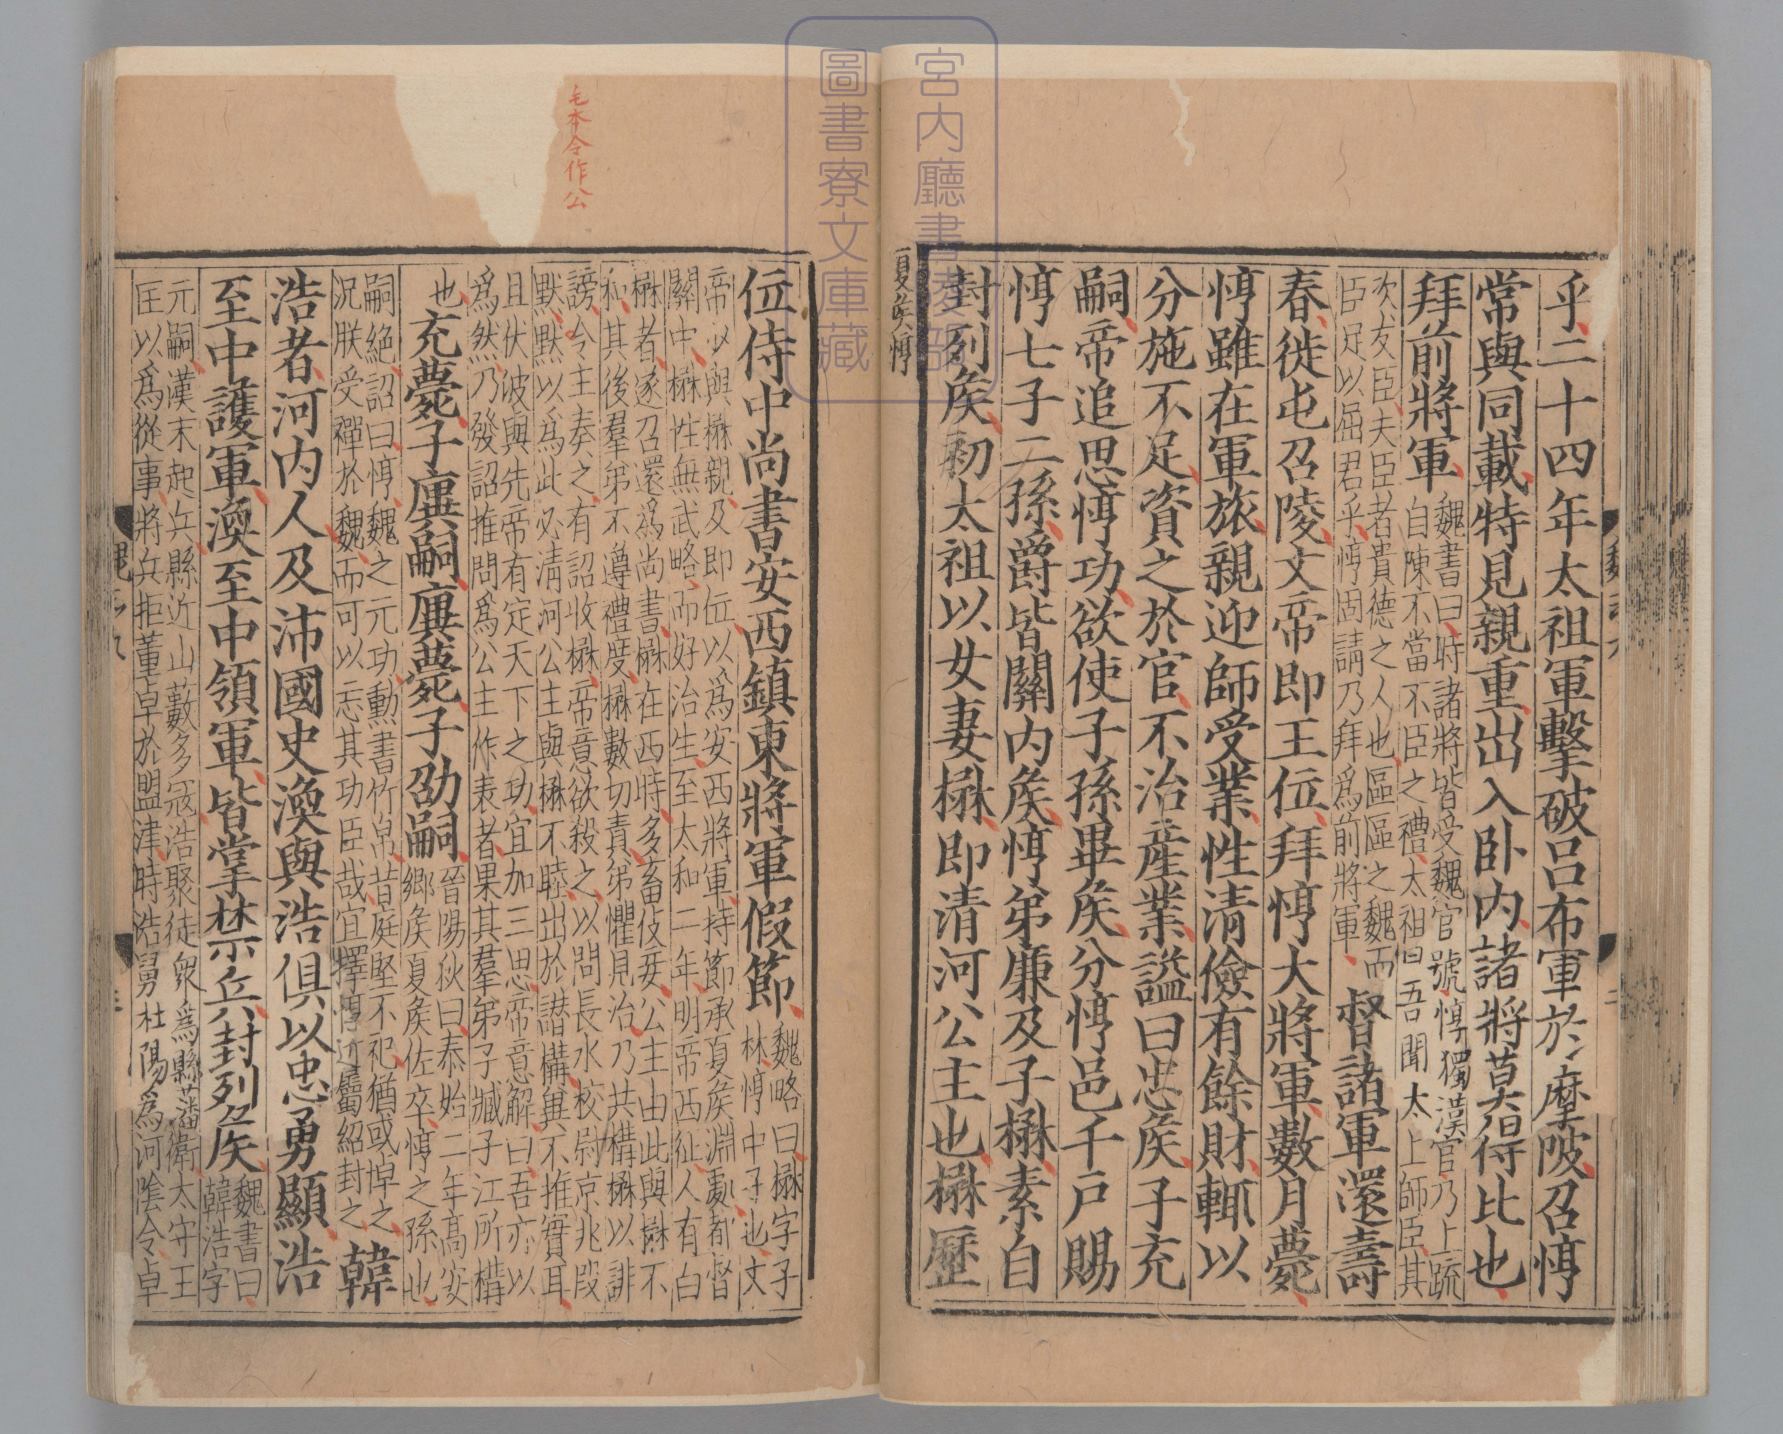 乎二十四年太祖軍擊破吕布軍於摩陂召惇
常與同載特見親重出入卧内諸將莫得比也
拜前將軍
魏書曰時諸將皆受魏官號惇獨漢官乃上疏
自陳不當不臣之禮太祖曰吾聞太上師臣其
次友臣夫臣者貴德之人也區區之魏而
臣足以屈君乎惇固請乃拜爲前將軍
督諸軍還壽
春徙屯召陵文帝即王位拜惇大將軍數月薨
惇雖在軍旅親迎師受業性清儉有餘財輒以
分施不足資之於官不治産業謚曰忠矦子充
嗣帝追思惇功欲使子孫畢矦分惇邑千户賜
惇七子二孫爵皆關内矦惇弟廉及子楙素自
封列矦初太祖以女妻楙即清河公主也楙歷
夏矦惇
宮内廳書陵部
圖書寮文庫藏
毛本令作公
位侍中尚書安西鎮東將軍假節
魏略曰楙字子
林惇中子也文
帝少與楙親及即位以爲安西將軍持節承夏矦淵處都督
關中楙性無武略而好治生至太和二年明帝西征人有白
楙者遂召還爲尚書楙在西時多畜伎妾公主由此與楙不
和其後羣弟不遵禮度楙數切責弟懼見治乃共構楙以誹
謗令主奏之有詔收楙帝意欲殺之以問長水校尉京兆段
默默以爲此必清河公主與楙不睦出於譖構冀不推實耳
且伏波與先帝有定天下之功宜加三思帝意解曰吾亦以
爲然乃發詔推問爲公主作表者果其羣弟子臧子江所構
也充薨子廙嗣廙薨子劭嗣
晉陽秋曰泰始二年高安
鄉矦夏矦佐卒惇之孫也
嗣絶詔曰惇魏之元功勲書竹帛昔庭堅不祀猶或悼之
況朕受禪於魏而可以忘其功臣哉宜擇惇近屬紹封之
韓
浩者河内人及沛國史渙與浩俱以忠勇顯浩
至中護軍渙至中領軍皆掌禁兵封列矦
魏書曰
韓浩字
元嗣漢末起兵縣近山藪多寇浩聚徒衆爲縣藩衛太守王
匡以爲從事將兵拒董卓於盟津時浩舅杜陽爲河陰令卓